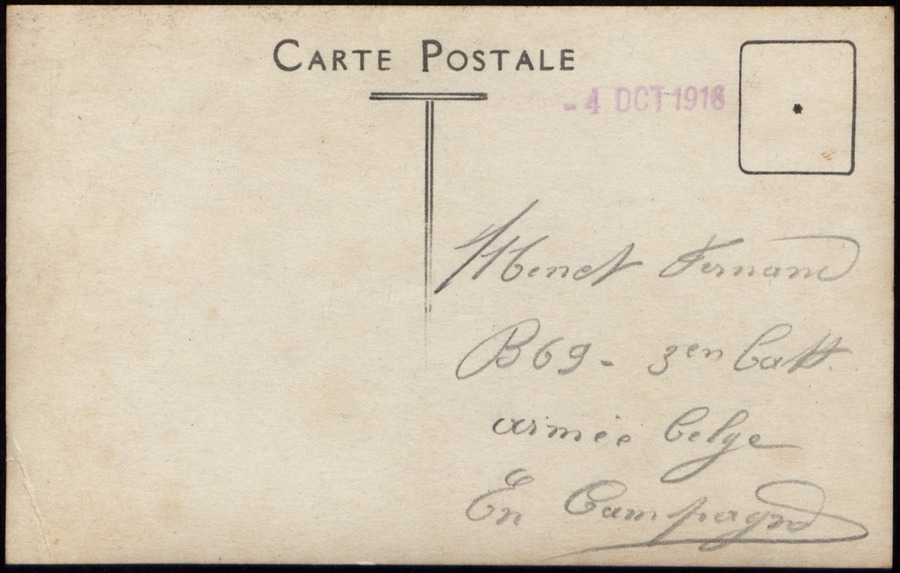 CARTE POSTALE
- 4 OCT 1918
Fernand
B 69 - 3en Batt.
armée belge
En Campagne